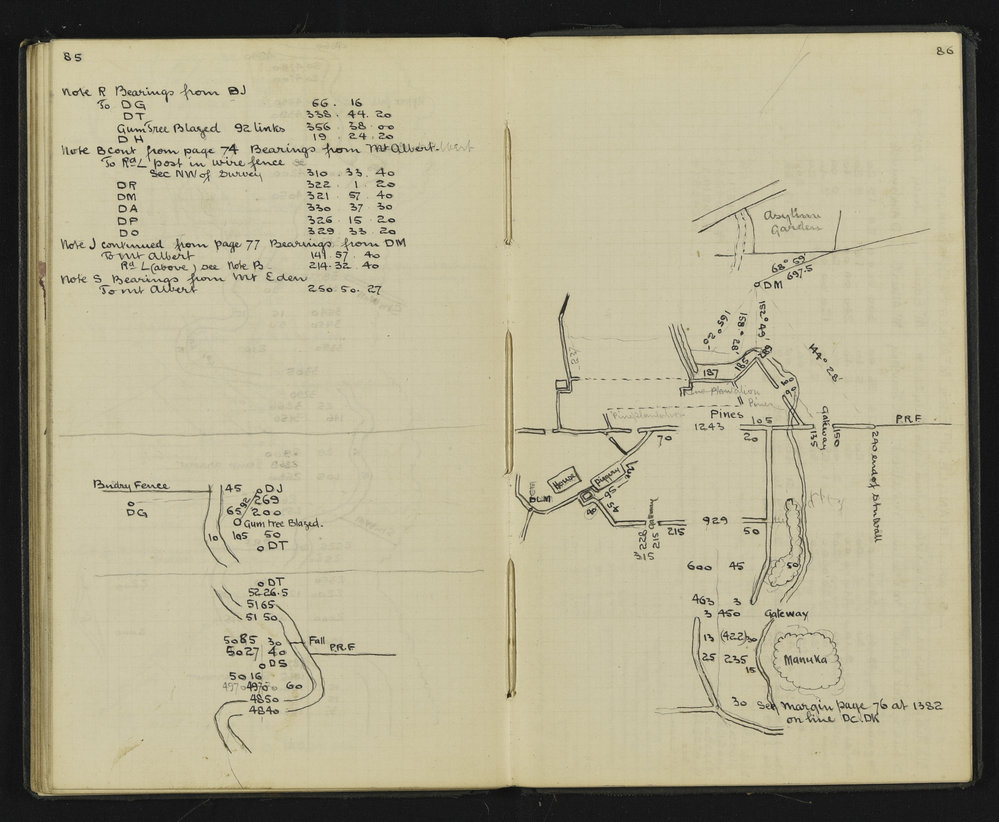 85
Note R Bearings from DJ
To DG 66. 16
DT 338. 44. 20
Gum Tree Blazed 92 links 356. 38. 00
DH 19. 24. 20
Note B cont from page 74 Bearings from Mt Albert.
To Rd L post in wire fence
Sec NW of Survey 310. 33. 40
DR 322. 1. 20
DM 321. 57. 40
DA 330. 37. 30
DP 326. 15. 20
DO 329. 33. 20
Note J continued from page 77 Bearings from DM
To Mt Albert 141. 57. 40
Rd L (above) see Note B. 214. 32. 40
Note S Bearings from Mt Eden
To Mt Albert 250. 50. 27
Bndry Fence 45 DJ
92 269
DG 65 200
Gum tree Blazed.
10 105 50
DT
DT
5226.5
5165
5150
5085 30 Fall
5027 40 P.R.F
DS
5016
4970 60
4850
4840
86
Asylum
Garden
68° 59'
697.5
DM
152° 49'
158° 28'
165° 20'
144° 28'
187 185 289
Pine plantation
Pines
Pineplantation
Pines 105 Gateway P.R.F
1243
70 20 135 150
290 end of Stn Wall
House
Piggery
DLM
56
45
Gateway
929
215 50
228 215
315
600 45 50
463 3
3 450 Gateway
13 (422) 30
25 235 Manuka
15
30 See margin page 76 at 1382
on line DC.DK